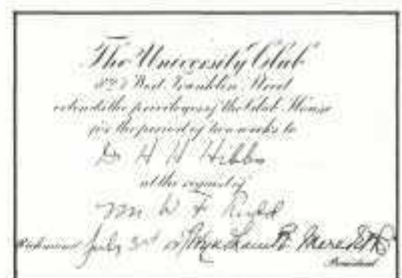 The University Club
West Franklin Street
extends the privileges of the Club House
for the period of two weeks to
Dr H H Hibbs
at the request of
Mr W F Rudd
Richmond July 3rd
President